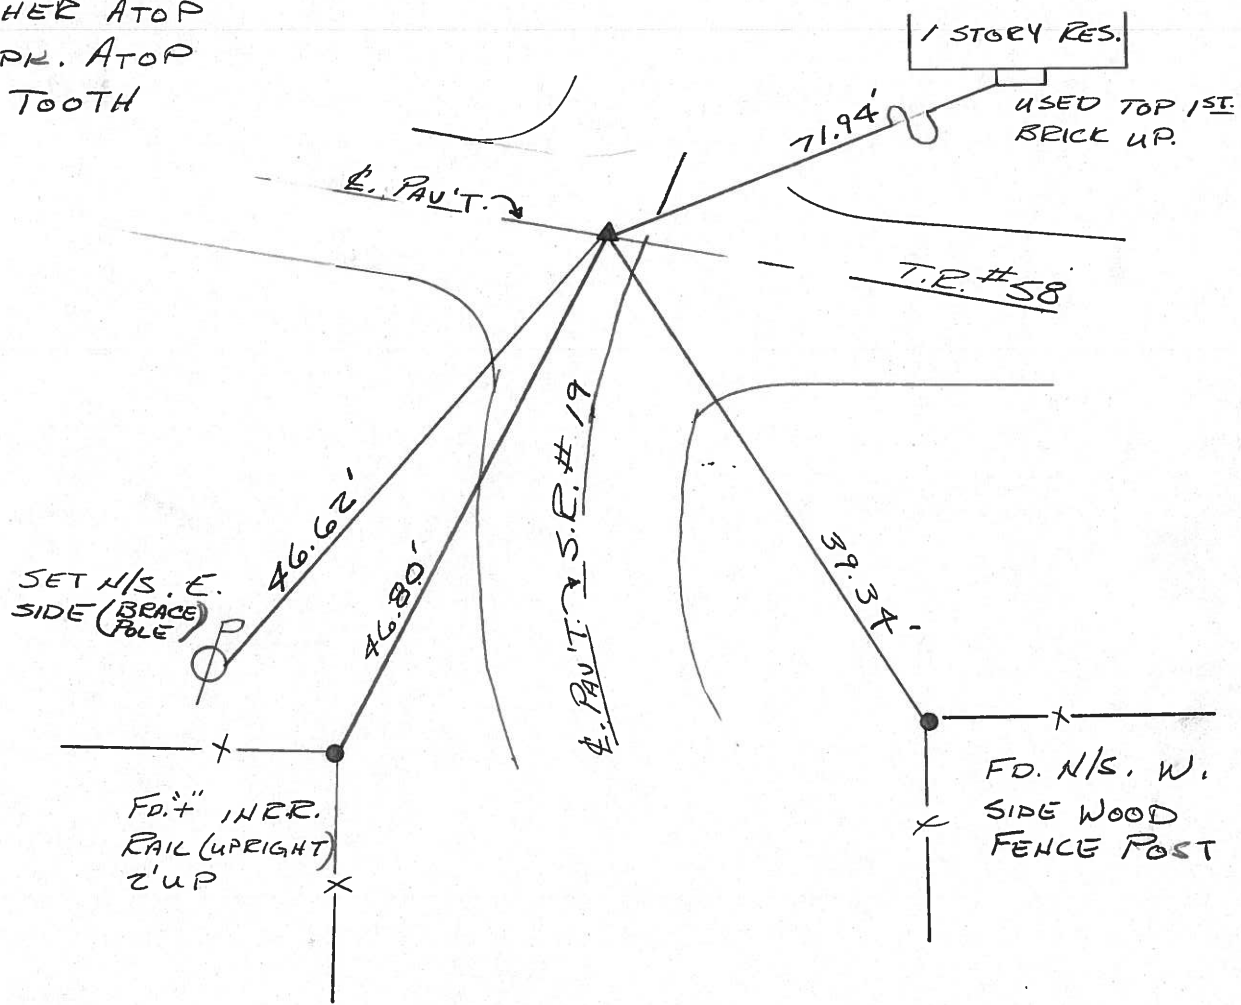 HER ATOP
PK. ATOP
TOOTH
1 STORY RES.
USED TOP 1ST.
BRICK UP.
71.94'
℄. PAV'T.
T.R. #58
46.62'
46.80'
℄. PAV'T. S.R. # 19
39.34'
SET N/S. E.
SIDE (BRACE
POLE)
P
FD. "+" IN R.R.
RAIL (UPRIGHT)
2' UP
FD. N/S. W.
SIDE WOOD
FENCE POST